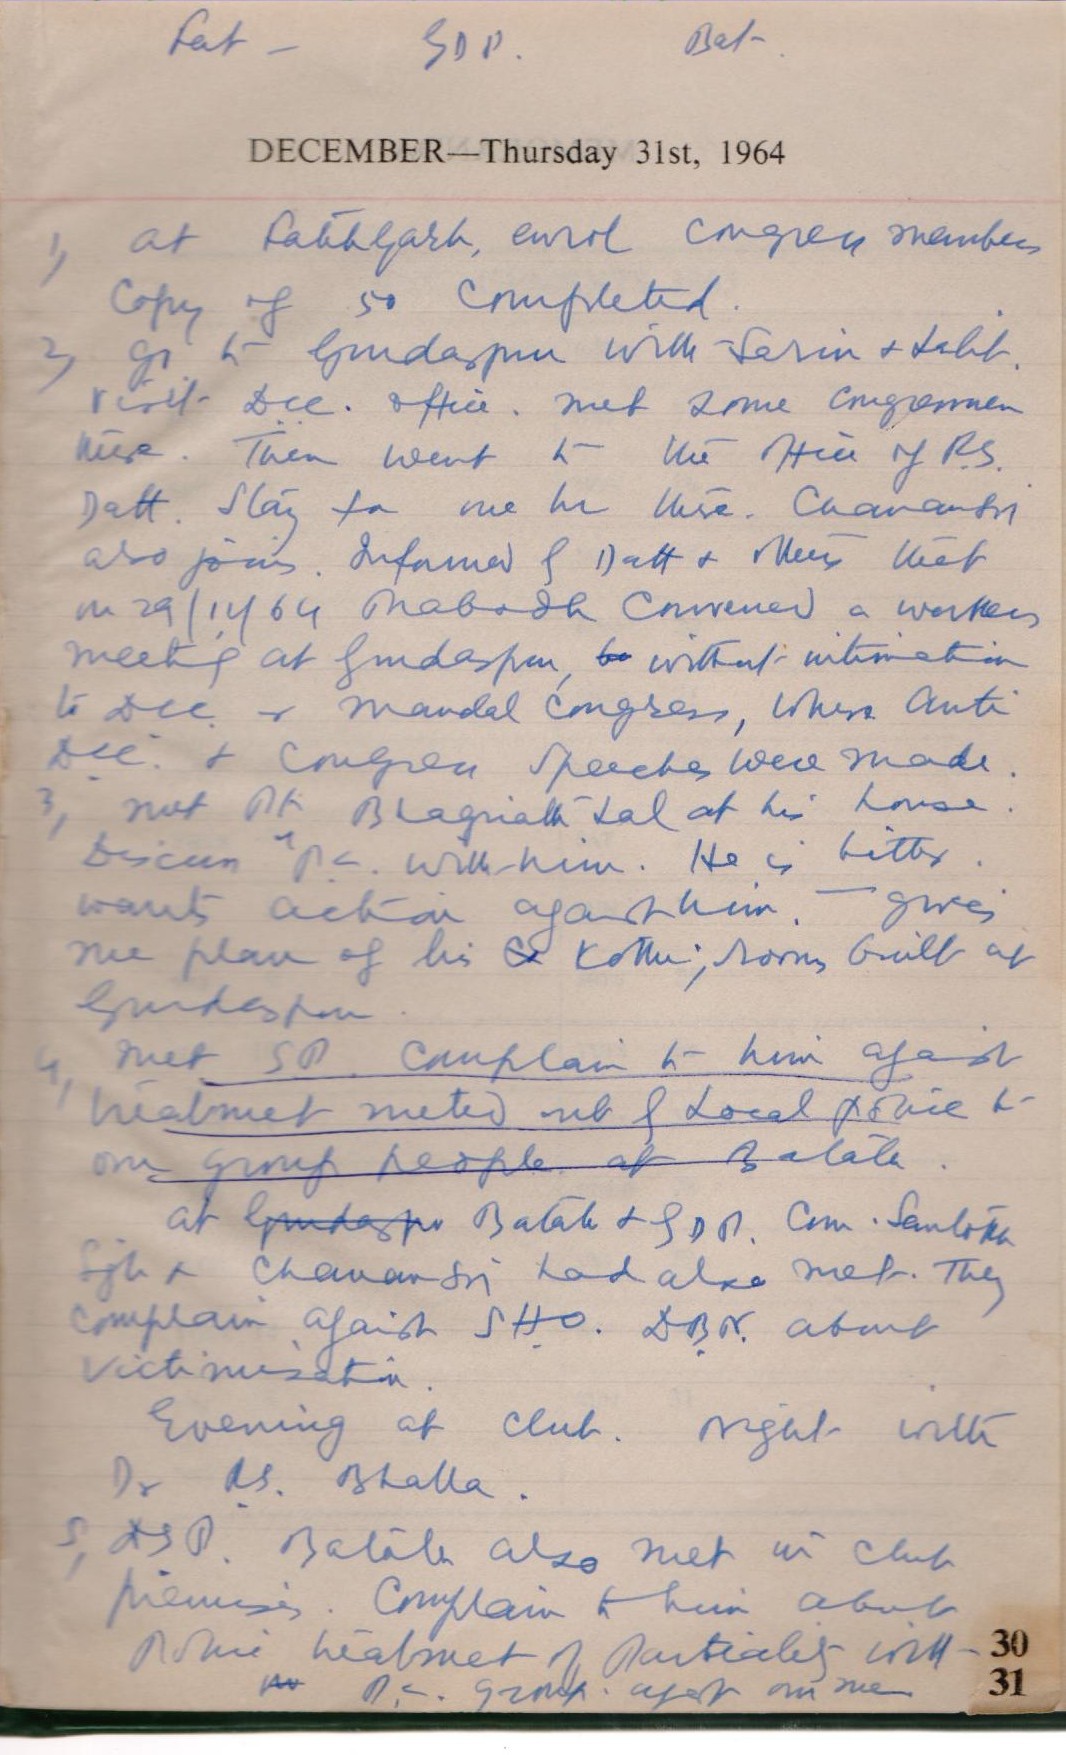 Fat - GDP. Bat-
DECEMBER—Thursday 31st, 1964
1, at Fatehgarh, enrol Congress members
Copy of 50 completed.
2, go to Gurdaspur with Sarin + Lalit.
visit DCC. office. met some Congressmen
there. Then went to the office of R.S.
Datt. Stay for one hr there. Chavan
also joins. Informed by Datt + others that
on 29/12/64 Prabodh Convened a workers
meeting at Gurdaspur, without intimation
to DCC. or Mandal Congress, where Anti
DCC. + Congress speeches were made.
3, met Pt. Bhagnath Lal at his house.
Discuss P.C. with him. He is bitter.
wants action against him. - gives
me plan of his Kothi, rooms built at
Gurdaspur.
4, met SP. Complain to him against
treatment meted out by Local police to
our group people at Batala.
at Batala + GDP. Com. Santokh
Sigh + had also met. They
complain against SHO. DBN. about
Victimisation.
Evening at club. Night with
Dr RS. Bhalla.
5, DSP. Batala also met in club
premises. Complain to him about
Police treatment of Partiality with
P.C. group. agst our men
30
31